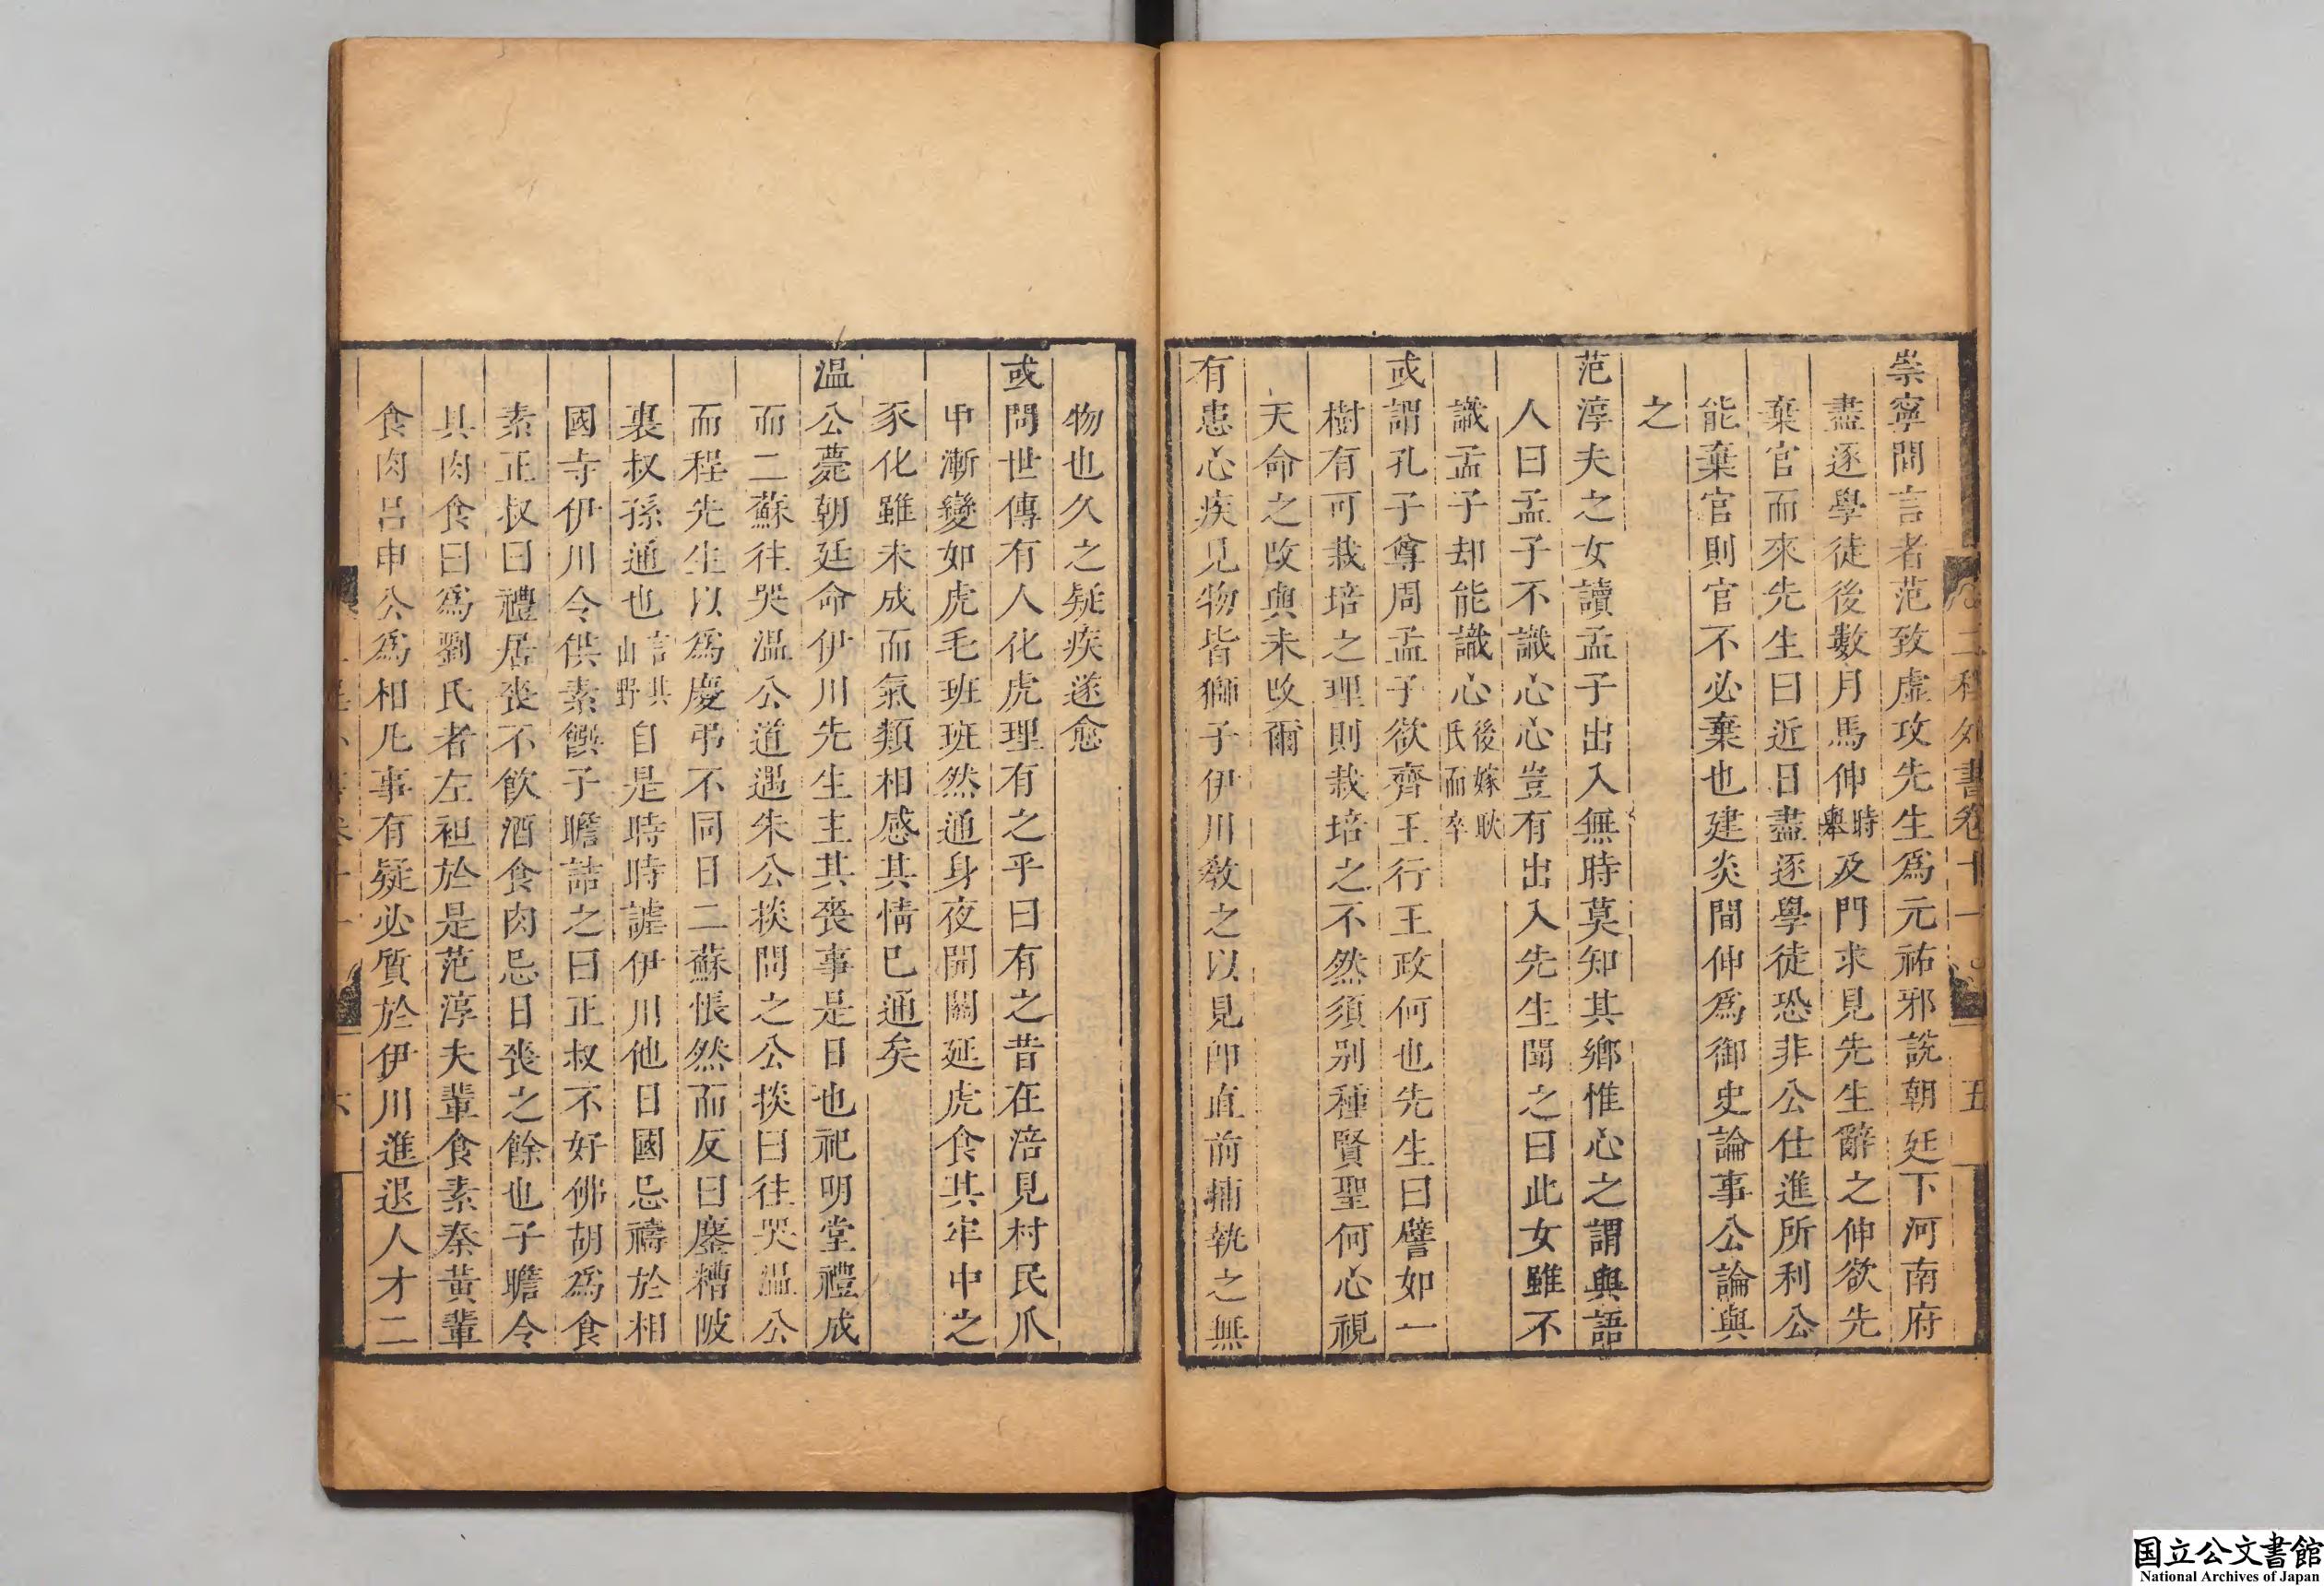 二程外書卷十一 五
崇寧間言者范致虛攻先生爲元祐邪說朝廷下河南府
盡逐學徒後數月馬伸時舉及門求見先生辭之伸欲先
棄官而來先生曰近日盡逐學徒恐非公仕進所利公
能棄官則官不必棄也建炎間伸爲御史論事公論與
之
范淳夫之女讀孟子出入無時莫知其鄉惟心之謂與語
人曰孟子不識心心豈有出入先生聞之曰此女雖不
識孟子却能識心後嫁耿氏而卒
或謂孔子尊周孟子欲齊王行王政何也先生曰譬如一
樹有可栽培之理則栽培之不然須别種賢聖何心視
天命之改與未改爾
有患心疾見物皆獅子伊川敎之以見卽直前捕執之無
物也久之疑疾遂愈
或問世傳有人化虎理有之乎曰有之昔在涪見村民爪
甲漸變如虎毛班班然通身夜開關延虎食其牢中之
豕化雖未成而氣類相感其情已通矣
温公薨朝廷命伊川先生主其喪事是日也祀明堂禮成
而二蘇往哭温公道遇朱公掞問之公掞曰往哭温公
而程先生以爲慶弔不同日二蘇悵然而反曰鏖糟陂
裏叔孫通也言其山野自是時時謔伊川他日國忌禱於相
國寺伊川令供素饌子瞻詰之曰正叔不好佛胡爲食
素正叔曰禮居喪不飮酒食肉忌日喪之餘也子瞻令
具肉食曰爲劉氏者左袒於是范淳夫輩食素秦黃輩
食肉呂申公爲相凡事有疑必質於伊川進退人才二
国立公文書館
National Archives of Japan